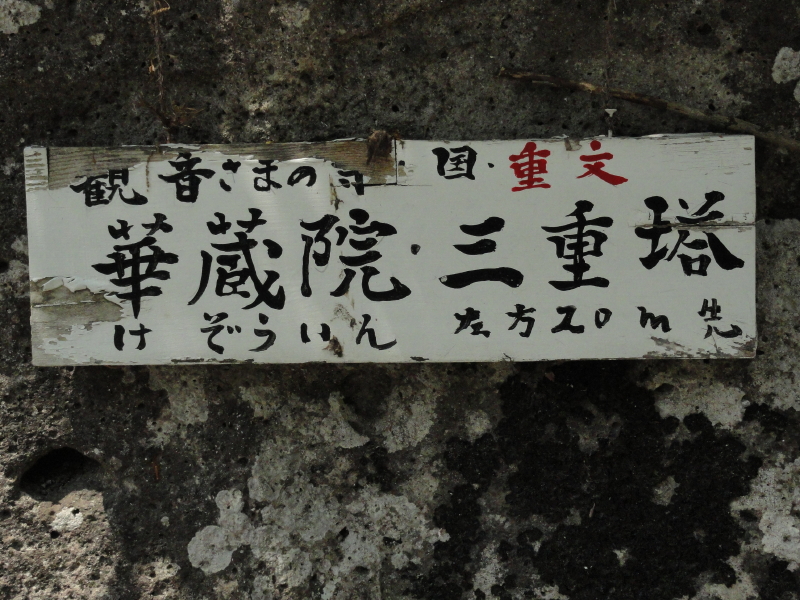 観音さまの寺・国・重文
華蔵院・三重塔
けぞういん 左方20m先